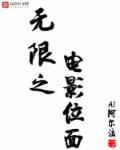 无限之
电影位面
AI阿尔法 著